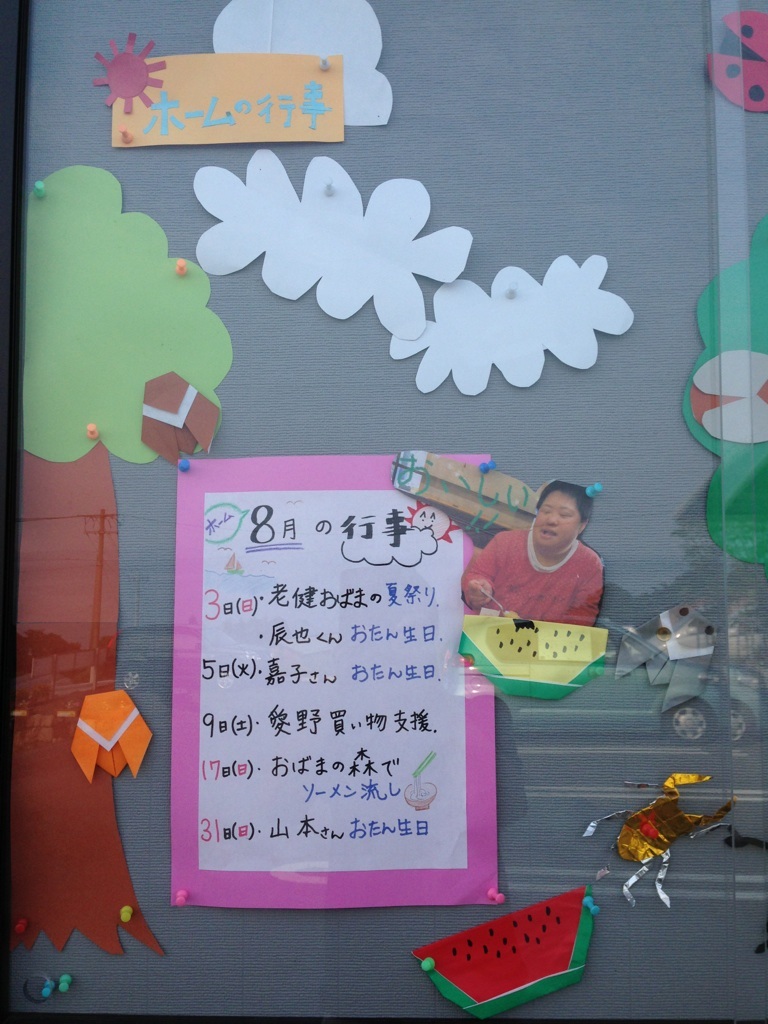 ホームの行事
おいしい!!
ホーム 8月の行事
3日(日)・老健おばまの夏祭り.
・辰也くん おたん生日.
5日(火)・嘉子さん おたん生日.
9日(土)・愛野買い物支援.
17日(日)・おばまの森で
ソーメン流し
31日(日)・山本さんおたん生日